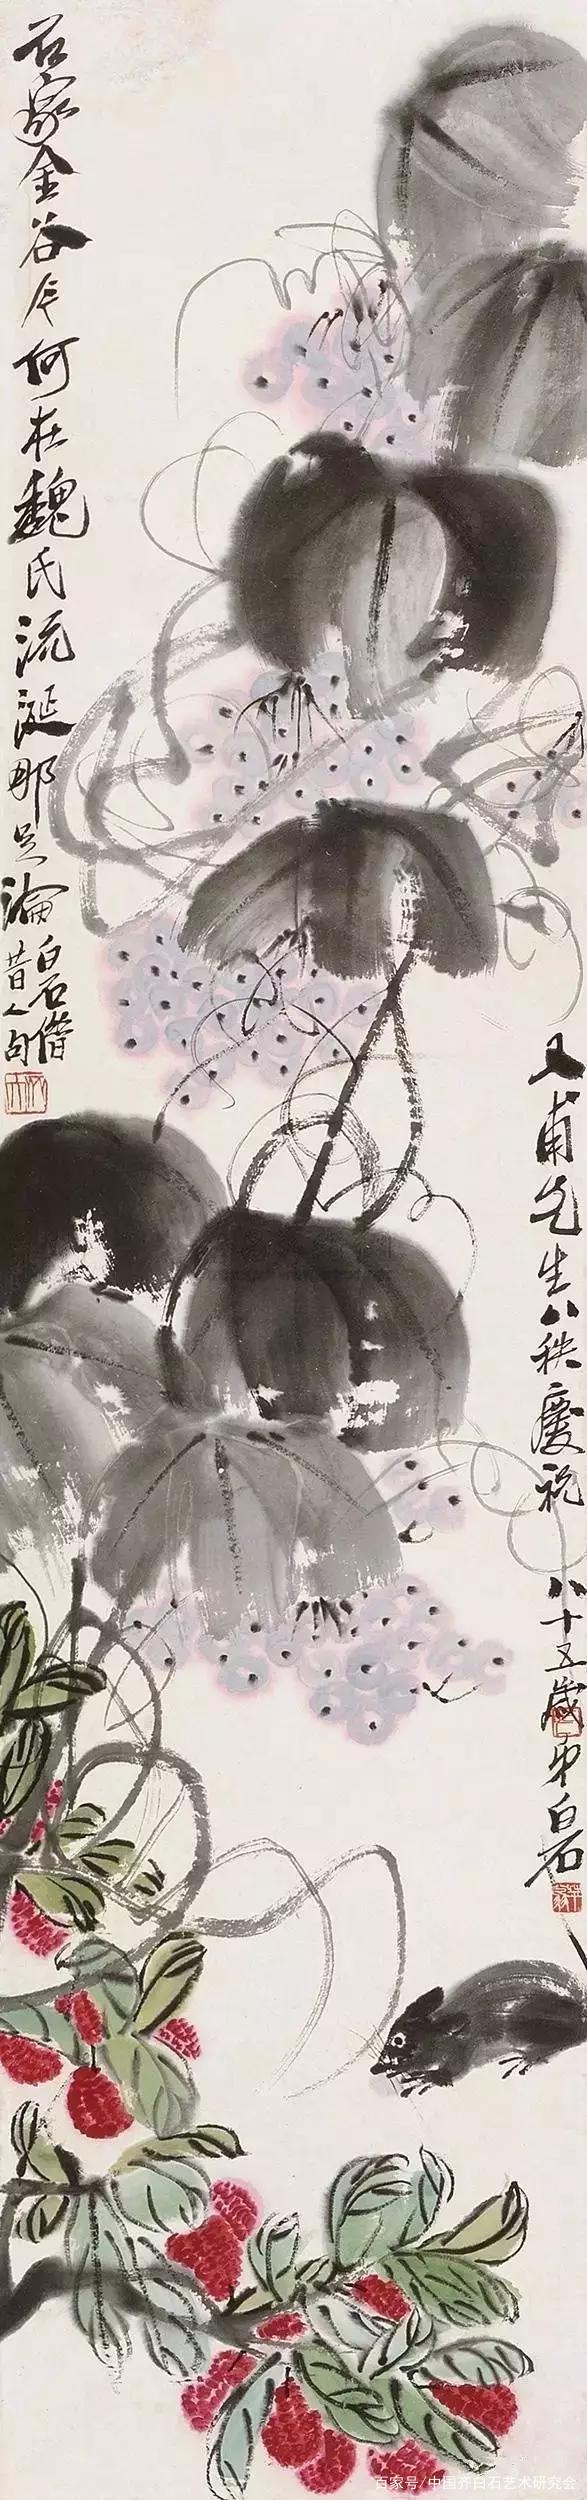 甫先生八秩慶祝 八十五歲弟白石
石家金谷今何在魏氏流涎那足論
白石借
昔人句
百家号/中国齐白石艺术研究会